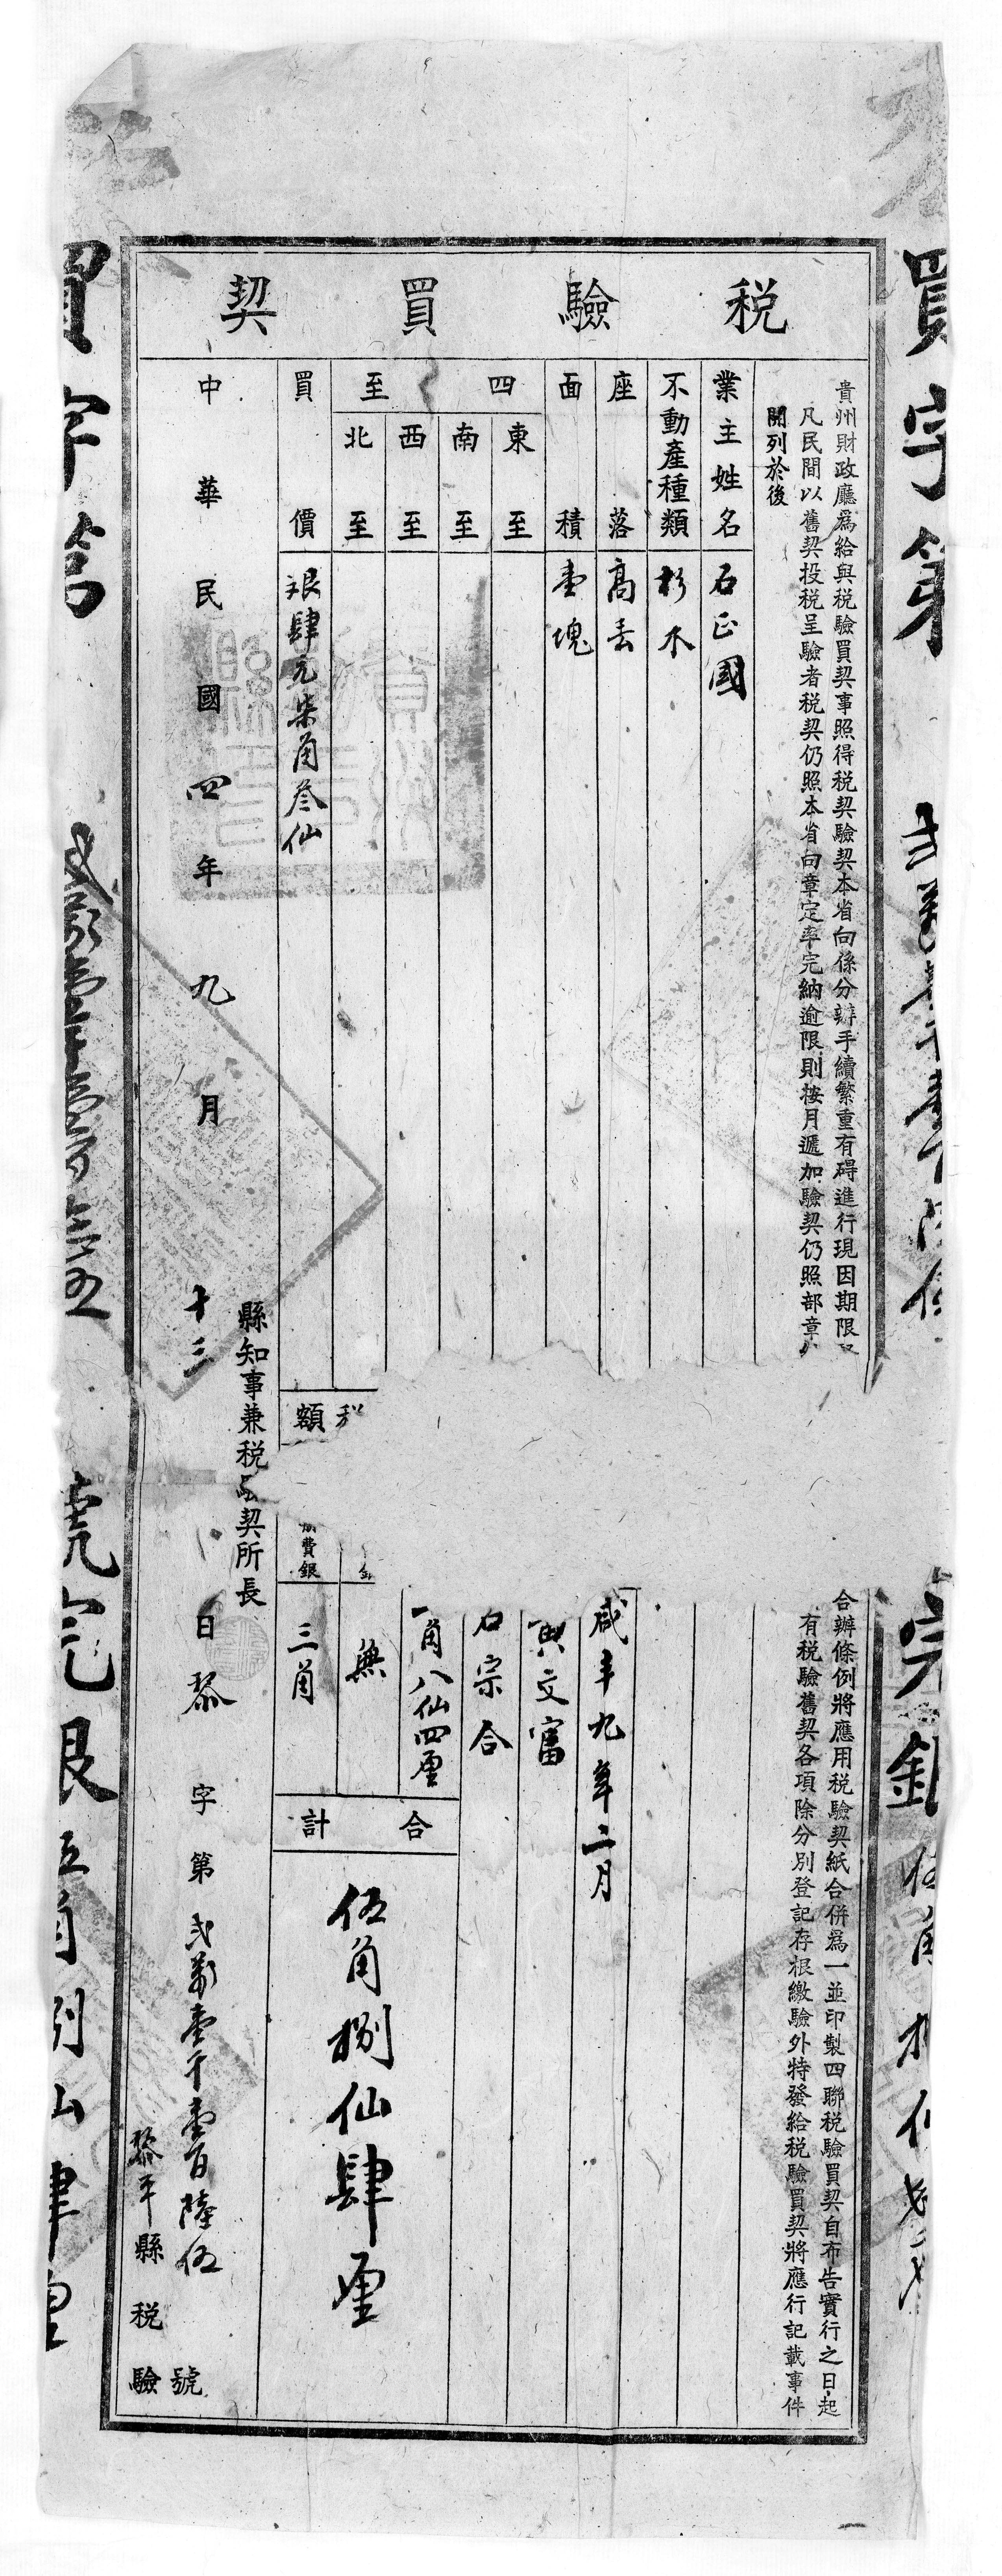 買字第
完銀伍角
稅驗買契
貴州財政廳爲給與稅驗買契事照得稅契驗契本省向係分辦手續繁重有碍進行現因期限
合辦條例將應用稅驗契紙合併爲一並印製四聯稅驗買契自布告實行之日起
凡民間以舊契投稅呈驗者稅契仍照本省向章定率完納逾限則按月遞加驗契仍照部章
有稅驗舊契各項除分別登記存根繳驗外特發給稅驗買契將應行記載事件
開列於後
業主姓名 石正國
不動產種類 杉木
座落 高丟
面積 壹塊
四至
東至
南至
西至
北至
買價 銀肆元柒角叁仙
稅額
費銀
咸丰九年二月
文富
石宗合
一角八仙四厘
無
三角
合計
伍角捌仙肆厘
縣知事兼稅契所長
中華民國四年九月十三日黎字第弍萬壹千壹百陸伍號
黎平縣稅驗
買字第
號完銀伍角捌仙肆厘